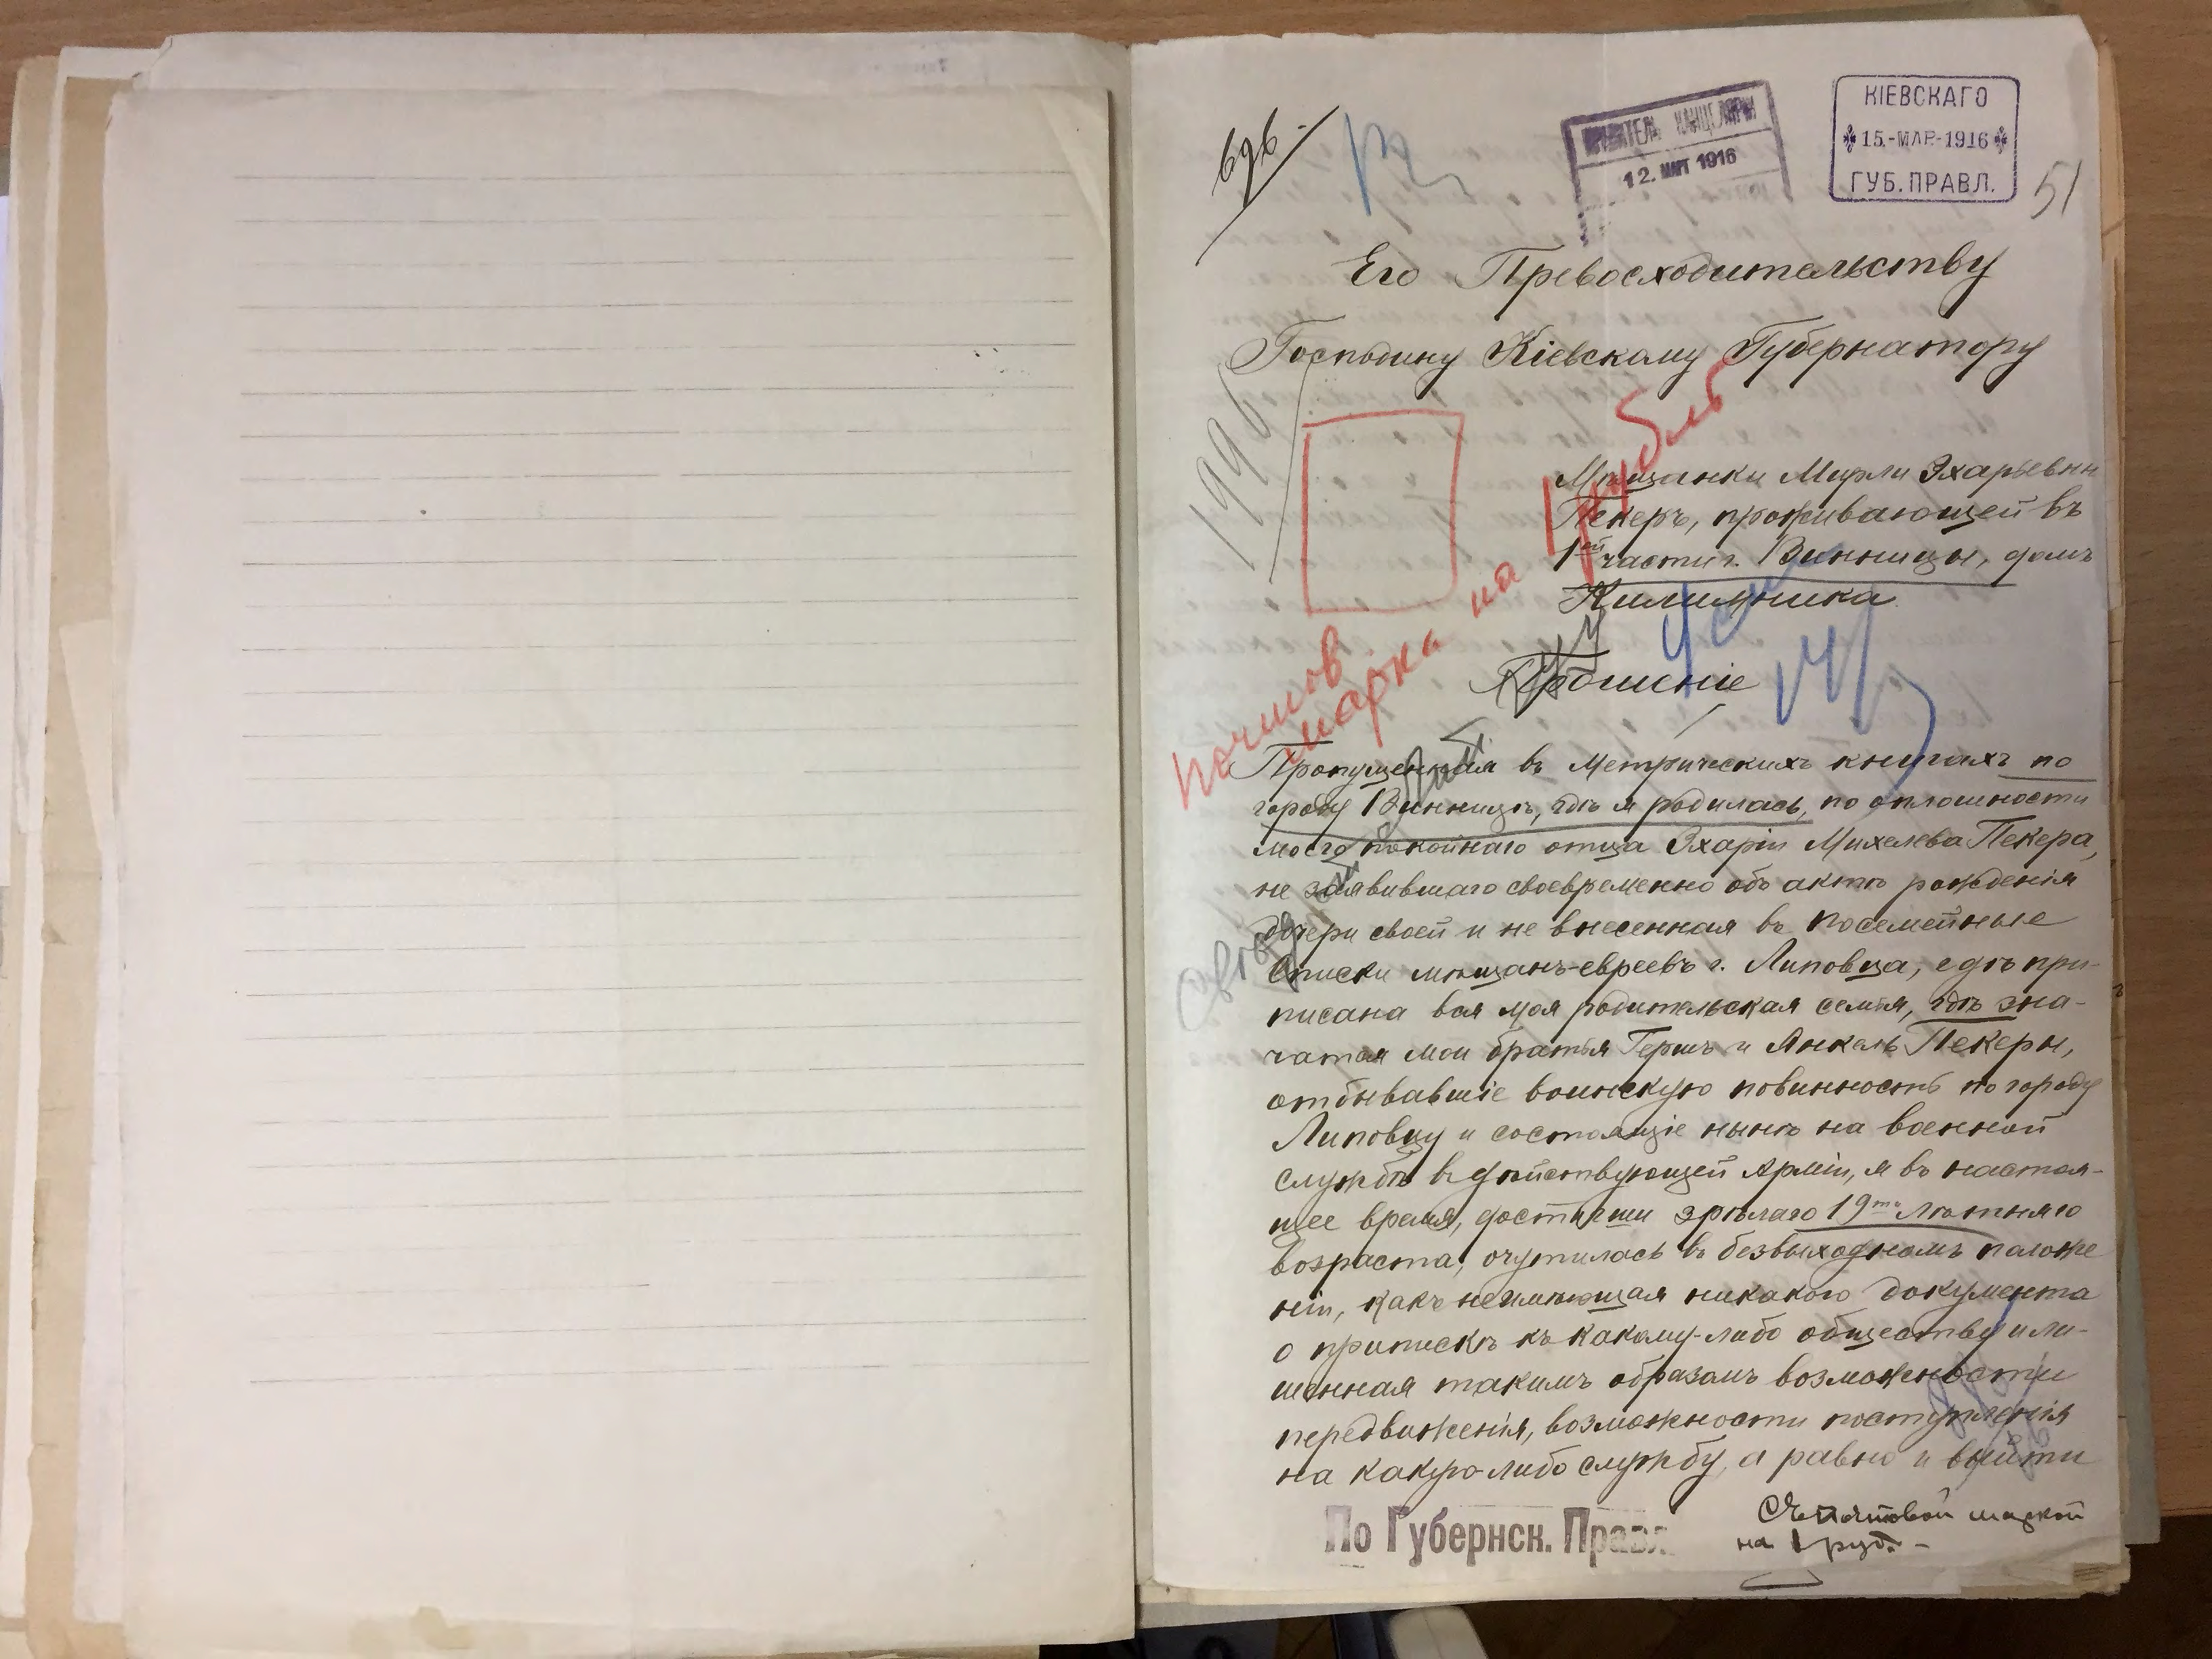 696.
12. МАР 1916
КІЕВСКАГО
15.-МАР.-1916
ГУБ. ПРАВЛ.
51
Его Превосходительству
Господину Кіевскому Губернатору
1996
Мѣщанки Мирли Эхарьевны
Пекеръ, проживающей въ
1ой части г. Винницы, домъ
Килимника
почтов
марка на 1 рубль
Прошеніе
Пропущенная въ Метрическихъ книгахъ по
городу Винницѣ, гдѣ я родилась, по оплошности
моего покойнаго отца Эхаріи Михелева Пекера,
не заявившаго своевременно объ актѣ рожденія
дочери своей и не внесенная въ посемейные
списки мѣщанъ-евреевъ г. Липовца, гдѣ при-
писана вся моя родительская семья, гдѣ зна-
чатся мои братья Гершъ и Янкель Пекеры,
отбывавшіе воинскую повинность по городу
Липовцу и состоящіе нынѣ на военной
службѣ въ дѣйствующей Арміи, я въ настоя-
щее время, достигши зрѣлаго 19ти лѣтняго
возраста, очутилась въ безвыходномъ положе
ніи, какъ неимѣющая никакого документа
о припискѣ къ какому-либо обществу и ли-
шенная такимъ образомъ возможности
передвиженія, возможности поступленія
на какую-либо службу, а равно и выйти
По Губернск. Правл.
Съ почтовой маркой
на 1 руб. -